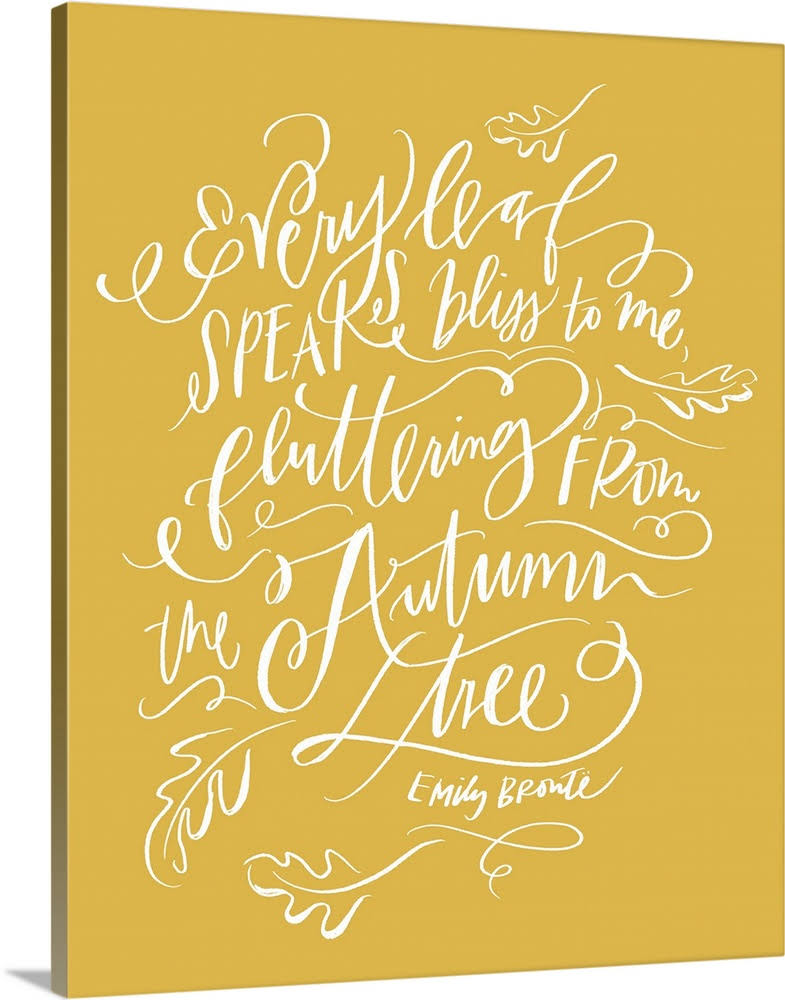 Every leaf
SPEAKS bliss to me,
fluttering FROM
the Autumn
tree
EMily BRONTË